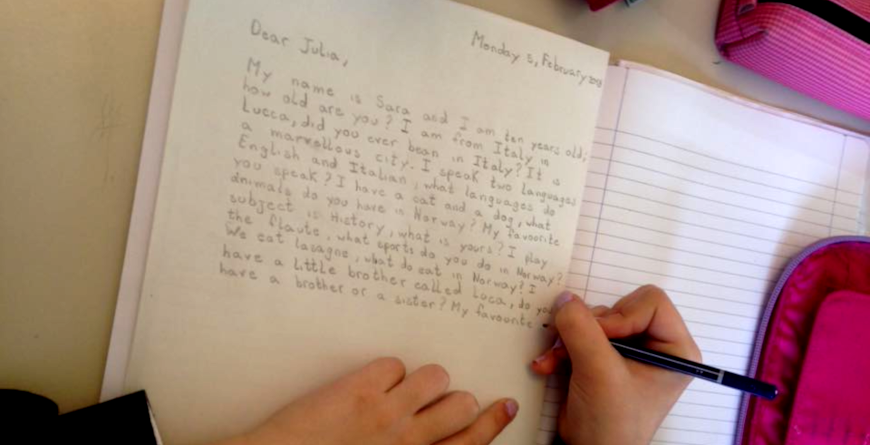 Monday 5, February
Dear Julia,
My name is Sara and I am ten years old;
how old are you? I am from Italy in
Lucca, did you ever bean in Italy? It is
a marvellous city. I speak two languages
English and Italian, what languages do
you speak? I have a cat and a dog, what
animals do you have in Norway? My favourite
subject is History, what is yours? I play
the flaute, what sports do you do in Norway?
We eat lasagne, what do eat in Norway? I
have a little brother called Luca, do you
have a brother or a sister? My favourite